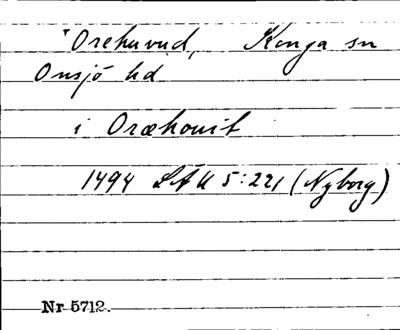 *Orehuvud, Konga sn
Onsjö hd
i Oræhouit
1494 LÄU 5:221 (Nyborg)
Nr 5712.